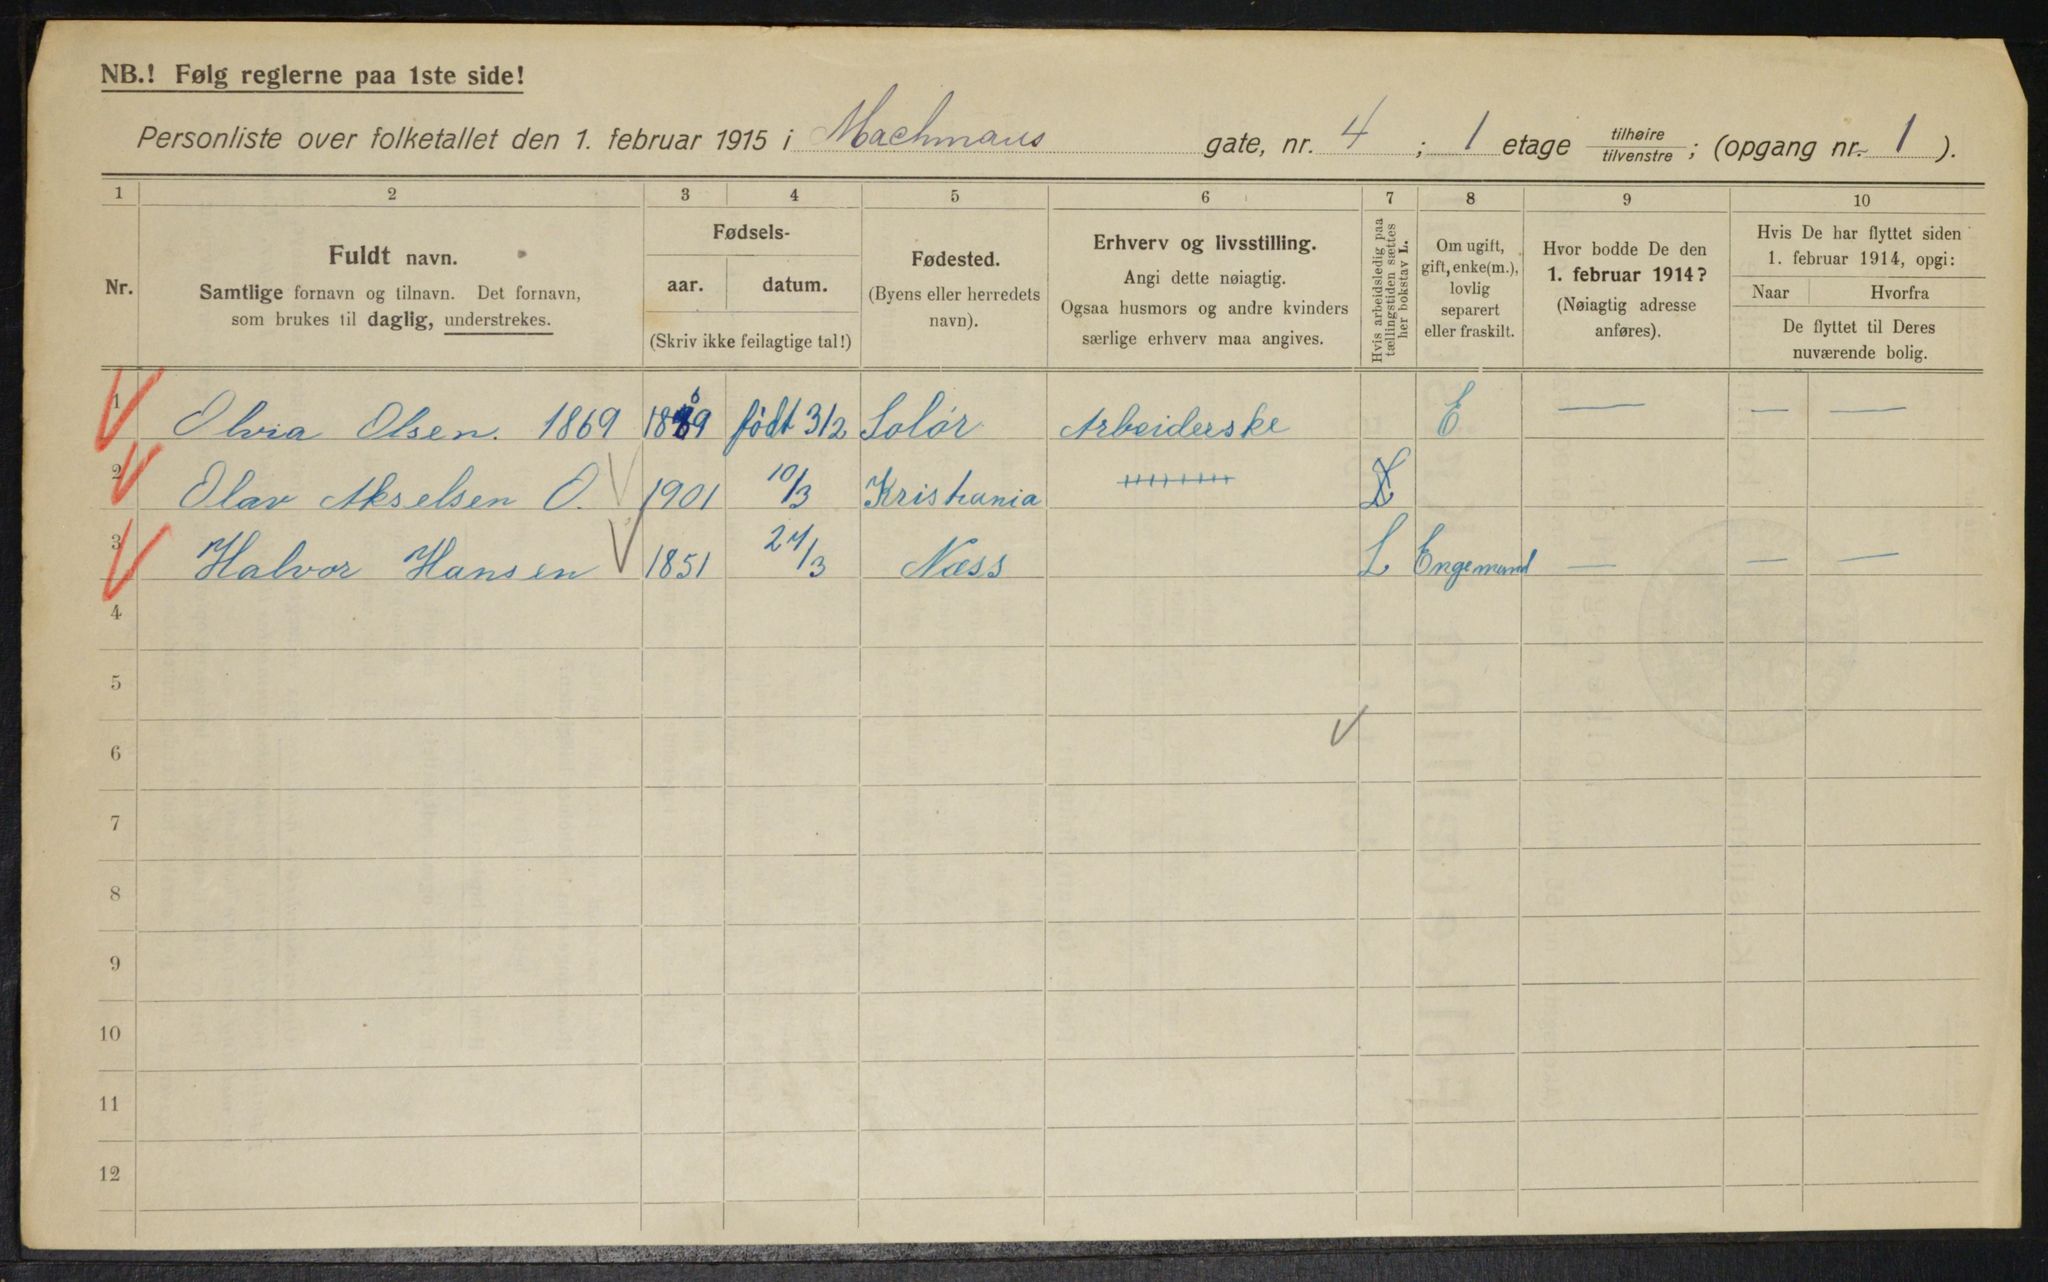 NB.! Følg reglerne paa 1ste side!
Personliste over folketallet den 1. februar 1915 i Machmans gate, nr. 4 ; 1 etage tilhøire / tilvenstre ; (opgang nr. 1 ).
1 2 3 4 5 6 7 8 9 10
Nr.
Fuldt navn.
Samtlige fornavn og tilnavn. Det fornavn,
som brukes til daglig, understrekes.
Fødsels-
aar. datum.
(Skriv ikke feilagtige tal!)
Fødested.
(Byens eller herredets
navn).
Erhverv og livsstilling.
Angi dette nøiagtig.
Ogsaa husmors og andre kvinders
særlige erhverv maa angives.
Hvis arbeidsledig paa
tællingstiden sættes
her bokstav L.
Om ugift,
gift, enke(m.),
lovlig
separert
eller fraskilt.
Hvor bodde De den
1. februar 1914?
(Nøiagtig adresse
anføres).
Hvis De har flyttet siden
1. februar 1914, opgi:
Naar Hvorfra
De flyttet til Deres
nuværende bolig.
1 Olvia Olsen. 1869 1869 født 3/2 Solør Arbeiderske E — — —
2 Olav Akselsen O. 1901 10/3 Kristiania L
3 Halvor Hansen 1851 24/3 Næss L Engemand — — —
4
5
6
7
8
9
10
11
12